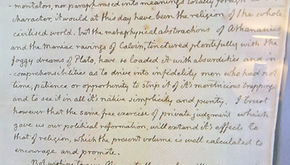 mentator, nor paraphrased into meanings totally foreign to
character, it would at this day have been the religion of the whole
civilised world. but the metaphysical abstractions of Athanasius
and the Maniac ravings of Calvin, tinctured plentifully with the
foggy dreams of Plato, have so loaded it with absurdities and in
comprehensibilities as to drive into infidelity men who had not
time, patience or opportunity to strip it of it's meretricious trappings
and to see it in all it's native simplicity and purity. I trust
however that the same free exercise of private judgment which
gave us our political reformation, will extend it's effects to
that of religion, which the present volume is well calculated to
encourage and promote.
Not wishing to